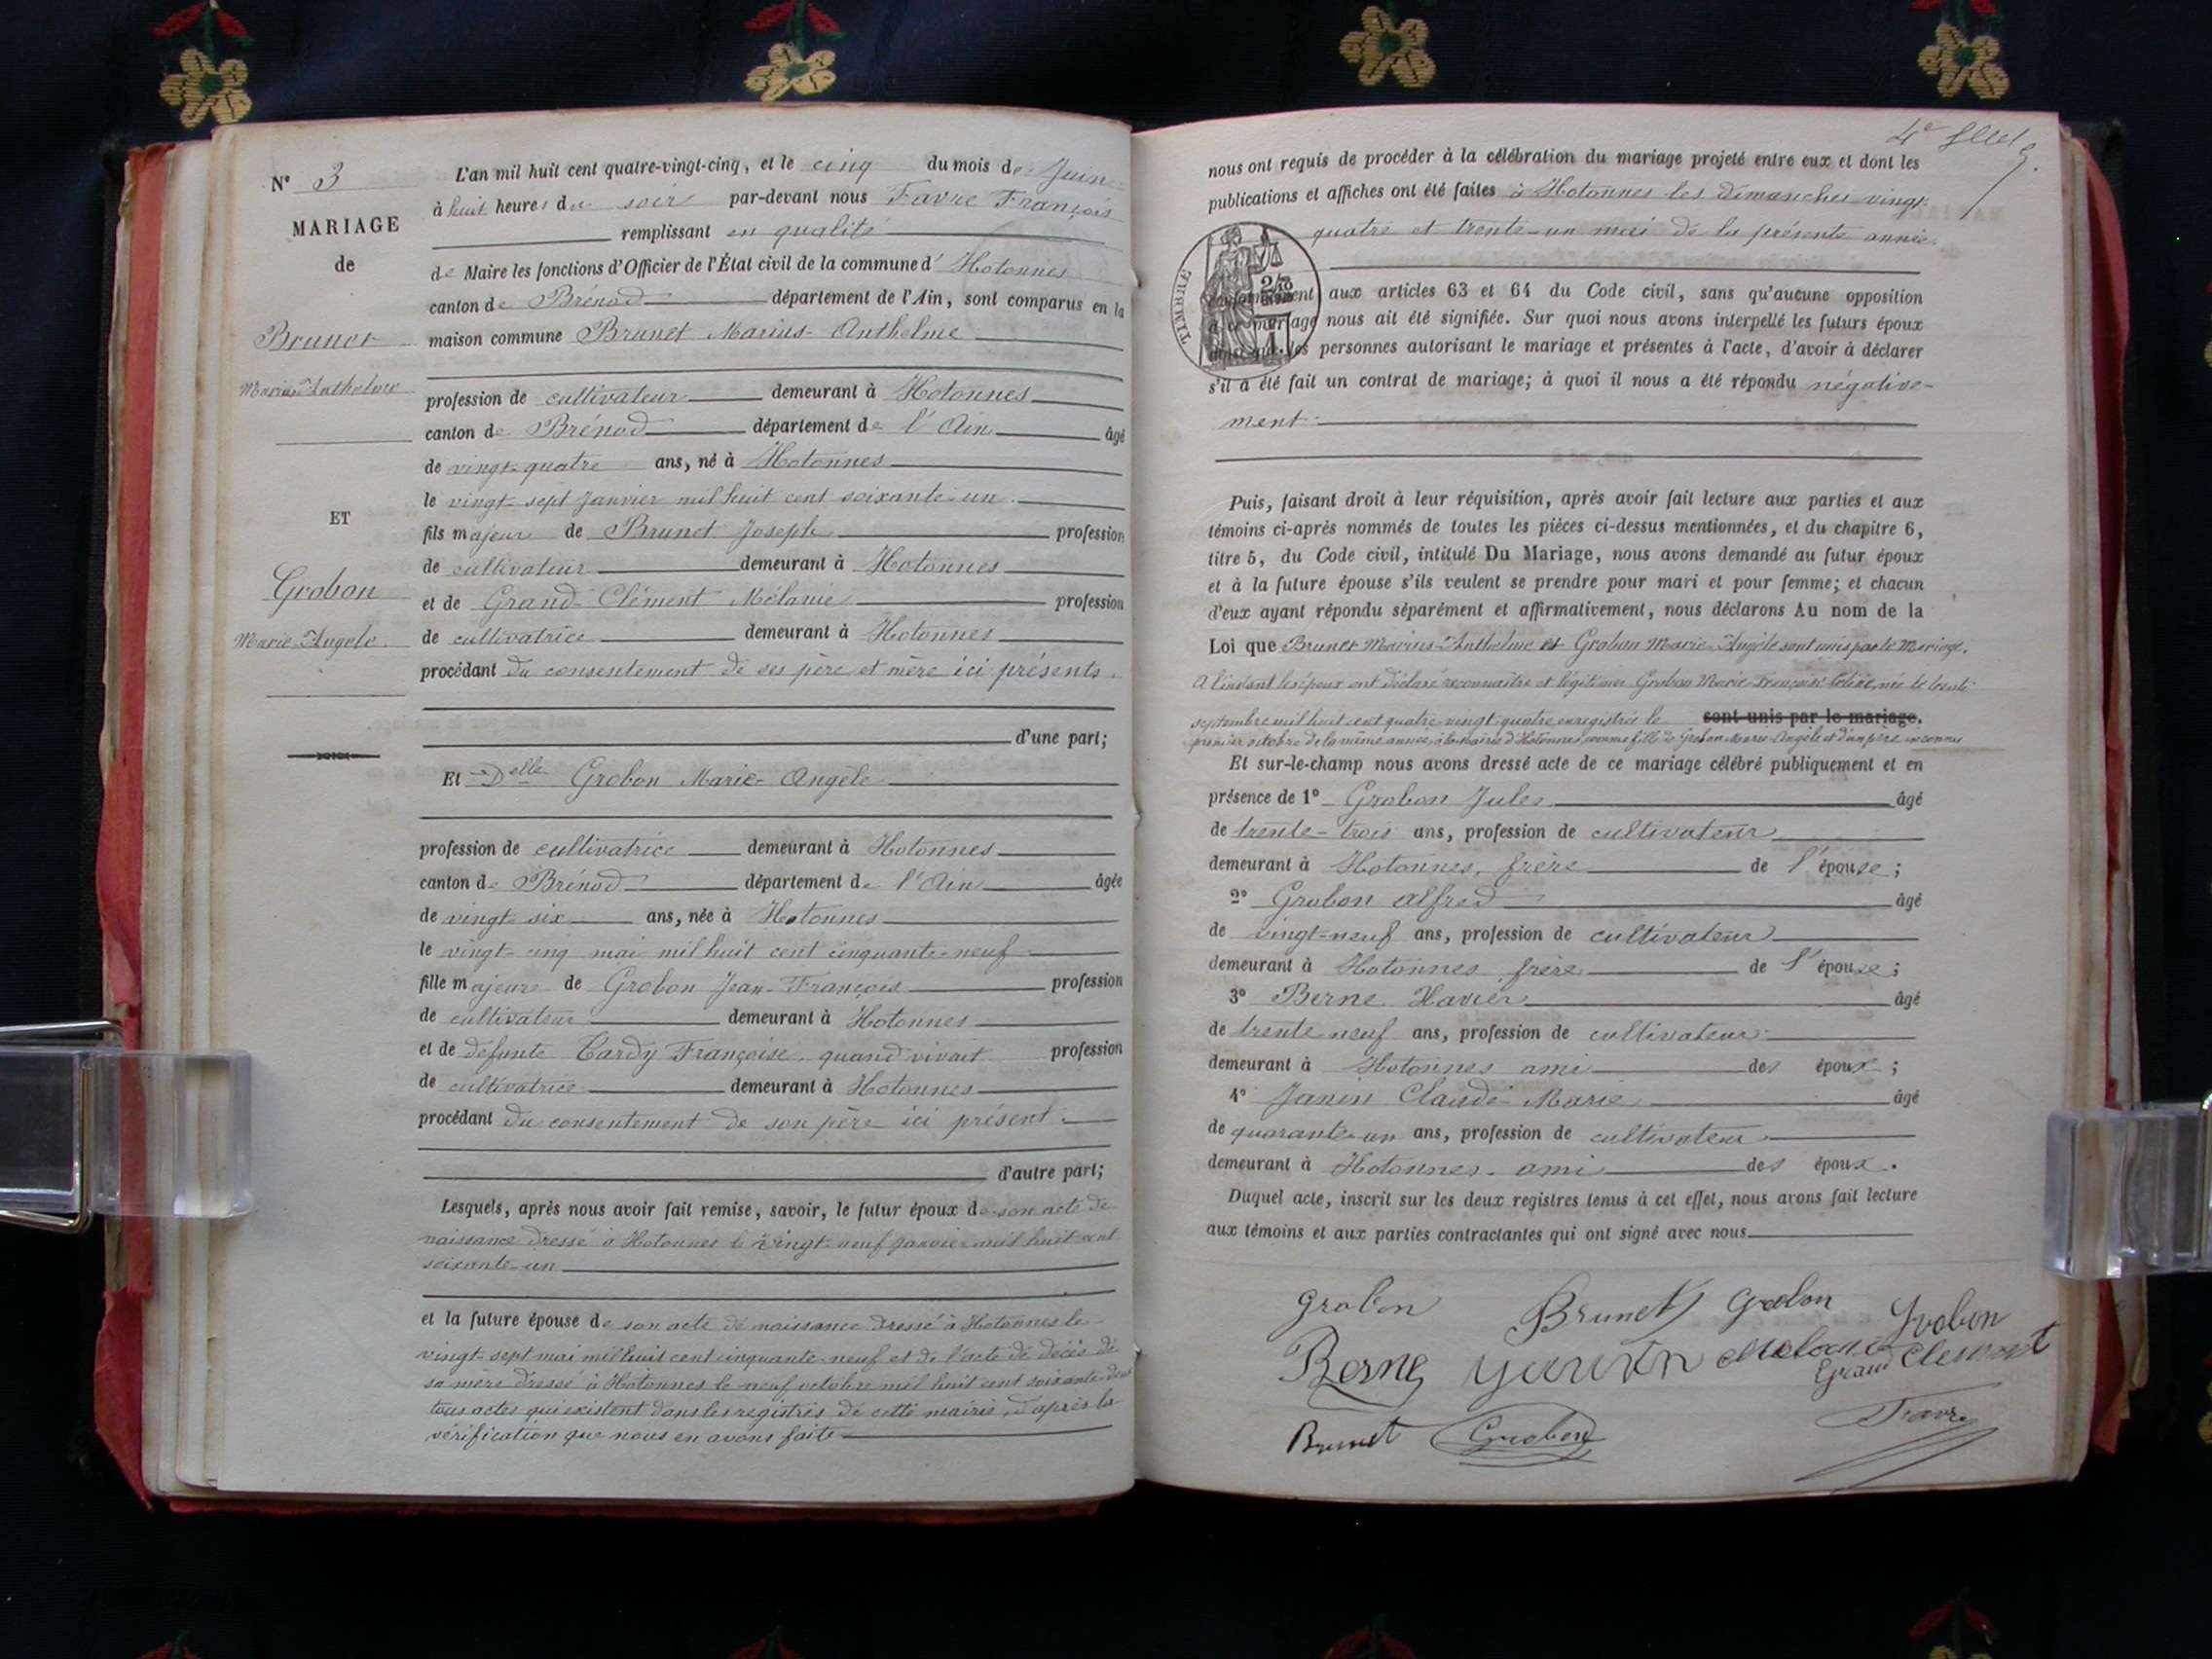 N° 3
MARIAGE
de
Brunet
Marius-Anthelme
ET
Grobon
Marie-Angèle.
L'an mil huit cent quatre-vingt-cinq, et le cinq du mois de Juin
à huit heures du soir par-devant nous Favre François
remplissant en qualité
de Maire les fonctions d'Officier de l'État civil de la commune d' Hotonnes
canton de Brénod département de l'Ain, sont comparus en la
maison commune Brunet Marius-Anthelme
profession de cultivateur demeurant à Hotonnes
canton de Brénod département de l'Ain âgé
de vingt-quatre ans, né à Hotonnes
le vingt-sept Janvier mil huit cent soixante-un.
fils majeur de Brunet Joseph profession
de cultivateur demeurant à Hotonnes
et de Grand-Clément Mélanie profession
de cultivatrice demeurant à Hotonnes
procédant du consentement de ses père et mère ici présents.
d'une part;
Et Delle Grobon Marie-Angèle
profession de cultivatrice demeurant à Hotonnes
canton de Brénod département de l'Ain âgée
de vingt-six ans, née à Hotonnes
le vingt-cinq mai mil huit cent cinquante-neuf
fille majeure de Grobon Jean-François profession
de cultivateur demeurant à Hotonnes
et de défunte Cardy Françoise quand vivait profession
de cultivatrice demeurant à Hotonnes
procédant du consentement de son père ici présent.
d'autre part;
Lesquels, après nous avoir fait remise, savoir, le futur époux de son acte de
naissance dressé à Hotonnes le vingt-neuf janvier mil huit cent
soixante-un
et la future épouse de son acte de naissance dressé à Hotonnes le
vingt-sept mai mil huit cent cinquante-neuf et de l'acte de décès de
sa mère dressé à Hotonnes le neuf octobre mil huit cent soixante-
tous actes qui existent dans les registres de cette mairie, d'après la
vérification que nous en avons faite
nous ont requis de procéder à la célébration du mariage projeté entre eux et dont les
publications et affiches ont été faites à Hotonnes les dimanches vingt-
quatre et trente-un mai de la présente année.
TIMBRE
conformément aux articles 63 et 64 du Code civil, sans qu'aucune opposition
à ce mariage nous ait été signifiée. Sur quoi nous avons interpellé les futurs époux
ainsi que les personnes autorisant le mariage et présentes à l'acte, d'avoir à déclarer
s'il a été fait un contrat de mariage; à quoi il nous a été répondu négative-
ment.
Puis, faisant droit à leur réquisition, après avoir fait lecture aux parties et aux
témoins ci-après nommés de toutes les pièces ci-dessus mentionnées, et du chapitre 6,
titre 5, du Code civil, intitulé Du Mariage, nous avons demandé au futur époux
et à la future épouse s'ils veulent se prendre pour mari et pour femme; et chacun
d'eux ayant répondu séparément et affirmativement, nous déclarons Au nom de la
Loi que Brunet Marius-Anthelme et Grobon Marie-Angèle sont unis par le Mariage.
A l'instant les époux ont déclaré reconnaître et légitimer Grobon Marie-Françoise née le trente
septembre mil huit cent quatre-vingt-quatre enregistrée le sont unis par le mariage.
premier octobre de la même année, à la mairie d'Hotonnes comme fille de Grobon Marie-Angèle et d'un père inconnu
Et sur-le-champ nous avons dressé acte de ce mariage célébré publiquement et en
présence de 1° Grobon Jules âgé
de trente-trois ans, profession de cultivateur
demeurant à Hotonnes, frère de l'épouse;
2° Grobon Alfred âgé
de vingt-neuf ans, profession de cultivateur
demeurant à Hotonnes frère de l'épouse;
3° Berne Xavier âgé
de trente-neuf ans, profession de cultivateur
demeurant à Hotonnes ami des époux;
4° Janin Claude-Marie âgé
de quarante-un ans, profession de cultivateur
demeurant à Hotonnes. ami des époux.
Duquel acte, inscrit sur les deux registres tenus à cet effet, nous avons fait lecture
aux témoins et aux parties contractantes qui ont signé avec nous
Grobon Brunet Grobon Grobon
Berne Grand Clement
Brunet Grobon Favre